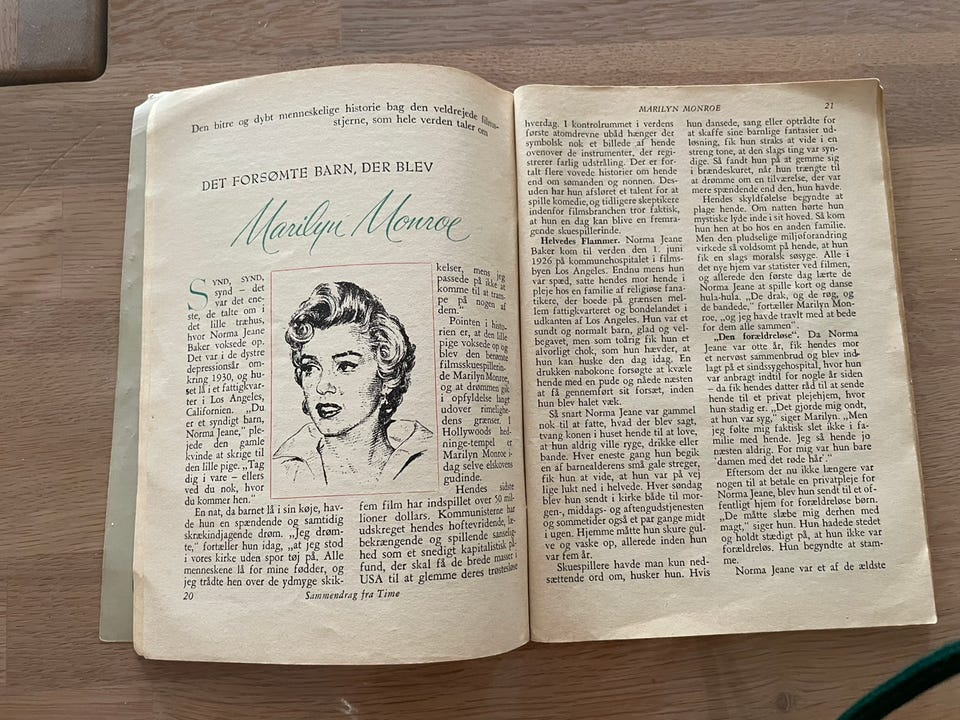 Den bitre og dybt menneskelige historie bag den veldrejede
stjerne, som hele verden taler om
DET FORSØMTE BARN, DER BLEV
Marilyn Monroe
SYND, SYND,
synd – det
var det ene-
ste, de talte om i
det lille træhus,
hvor Norma Jeane
Baker voksede op.
Det var i de dystre
depressionsår om-
kring 1930, og hu-
set lå i et fattigkvar-
ter i Los Angeles,
Californien. „Du
er et syndigt barn,
Norma Jeane,” ple-
jede den gamle
kvinde at skrige til
den lille pige. „Tag
dig i vare – ellers
ved du nok, hvor
du kommer hen.”
En nat, da barnet lå i sin køje, hav-
de hun en spændende og samtidig
skrækindjagende drøm. „Jeg drøm-
te,” fortæller hun idag, „at jeg stod
i vores kirke uden spor tøj på. Alle
menneskene lå for mine fødder, og
jeg trådte hen over de ydmyge skik-
kelser, mens jeg
passede på ikke at
komme til at tram-
pe på nogen af
dem.”
Pointen i histo-
rien er, at den lille
pige voksede op og
blev den berømte
filmsskuespillerin-
de Marilyn Monroe,
og at drømmen gik
i opfyldelse langt
udover rimelighe-
dens grænser. I
Hollywoods hed-
ninge-tempel er
Marilyn Monroe i-
dag selve elskovens
gudinde.
Hendes sidste
fem film har indspillet over 50 mil-
lioner dollars. Kommunisterne har
udskreget hendes hoftevridende, læ-
bekrængende og spillende sanselig-
hed som et snedigt kapitalistisk på-
fund, der skal få de brede masser i
USA til at glemme deres trøstesløse
20
Sammendrag fra Time
MARILYN MONROE
21
hverdag. I kontrolrummet i verdens
første atomdrevne ubåd hænger der
symbolsk nok et billede af hende
ovenover de instrumenter, der regi-
strerer farlig udstråling. Der er for-
talt flere vovede historier om hende
end om sømanden og nonnen. Des-
uden har hun afsløret et talent for at
spille komedie, og tidligere skeptikere
indenfor filmsbranchen tror faktisk,
at hun en dag kan blive en fremra-
gende skuespillerinde.
Helvedes Flammer. Norma Jeane
Baker kom til verden den 1. juni
1926 på kommunehospitalet i films-
byen Los Angeles. Endnu mens hun
var spæd, satte hendes mor hende i
pleje hos en familie af religiøse fana-
tikere, der boede på grænsen mel-
lem fattigkvarteret og bondelandet i
udkanten af Los Angeles. Hun var et
sundt og normalt barn, glad og vel-
begavet, men som toårig fik hun et
alvorligt chok, som hun hævder, at
hun kan huske den dag idag. En
drukken nabokone forsøgte at kvæle
hende med en pude og nåede næsten
at få gennemført sit forsæt, inden
hun blev halet væk.
Så snart Norma Jeane var gammel
nok til at fatte, hvad der blev sagt,
tvang konen i huset hende til at love,
at hun aldrig ville ryge, drikke eller
bande. Hver eneste gang hun begik
en af barnealderens små gale streger,
fik hun at vide, at hun var på vej
lige lukt ned i helvede. Hver søndag
blev hun sendt i kirke både til mor-
gen-, middags- og aftengudstjenesten
og sommetider også et par gange midt
i ugen. Hjemme måtte hun skure gul-
ve og vaske op, allerede inden hun
var fem år.
Skuespillere havde man kun ned-
sættende ord om, husker hun. Hvis
hun dansede, sang eller optrådte for
at skaffe sine barnlige fantasier ud-
løsning, fik hun straks at vide i en
streng tone, at den slags ting var syn-
dige. Så fandt hun på at gemme sig
i brændeskuret, når hun trængte til
at drømme om en tilværelse, der var
mere spændende end den, hun havde.
Hendes skyldfølelse begyndte at
plage hende. Om natten hørte hun
mystiske lyde inde i sit hoved. Så kom
hun hen at bo hos en anden familie.
Men den pludselige miljøforandring
virkede så voldsomt på hende, at hun
fik en slags moralsk søsyge. Alle i
det nye hjem var statister ved filmen,
og allerede den første dag lærte de
Norma Jeane at spille kort og danse
hula-hula. „De drak, og de røg, og
de bandede,” fortæller Marilyn Mon-
roe, „og jeg havde travlt med at bede
for dem alle sammen”.
„Den forældreløse”. Da Norma
Jeane var otte år, fik hendes mor
et nervøst sammenbrud og blev ind-
lagt på et sindssygehospital, hvor hun
var anbragt indtil for nogle år siden
– da fik hendes datter råd til at sende
hende til et privat plejehjem, hvor
hun stadig er. „Det gjorde mig ondt,
at hun var syg,” siger Marilyn. „Men
jeg følte mig faktisk slet ikke i fa-
milie med hende. Jeg så hende jo
næsten aldrig. For mig var hun bare
'damen med det røde hår'.”
Eftersom der nu ikke længere var
nogen til at betale en privatpleje for
Norma Jeane, blev hun sendt til et of-
fentligt hjem for forældreløse børn.
„De måtte slæbe mig derhen med
magt,” siger hun. Hun hadede stedet
og holdt stædigt på, at hun ikke var
forældreløs. Hun begyndte at stam-
me.
Norma Jeane var et af de ældste